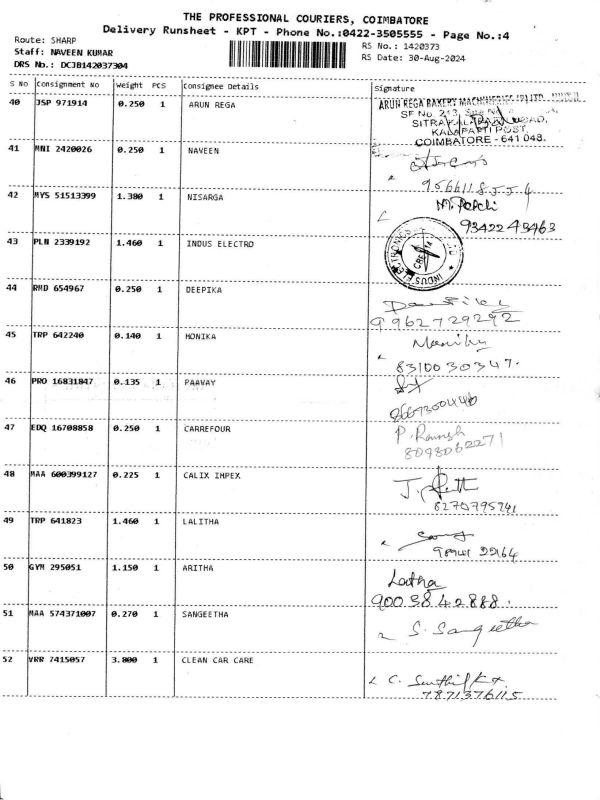 THE PROFESSIONAL COURIERS, COIMBATORE
Delivery Runsheet - KPT - Phone No.:0422-3505555 - Page No.:4
Route: SHARP
Staff: NAVEEN KUMAR
DRS No.: DCJB142037304
RS No.: 1420373
RS Date: 30-Aug-2024
S No Consignment No Weight PCS Consignee Details Signature
40 JSP 971914 0.250 1 ARUN REGA
ARUN REGA BAKERY MACHINERIES (P) LTD
SF No. 213,
KALAPATTI POST,
COIMBATORE - 641 048.
41 MNI 2420026 0.250 1 NAVEEN
42 MYS 51513399 1.380 1 NISARGA
9342243463
43 PLN 2339192 1.460 1 INDUS ELECTRO
INDUS ELECTRONICS
44 RMD 654967 0.250 1 DEEPIKA
9962729292
45 TRP 642240 0.140 1 MONIKA
8310030347.
46 PRO 16831847 0.135 1 PAAVAY
47 EDQ 16708858 0.250 1 CARREFOUR
P. Ramesh
8098062271
48 MAA 600399127 0.225 1 CALIX IMPEX
6270795741
49 TRP 641823 1.460 1 LALITHA
50 GYM 295051 1.150 1 ARITHA
Latha
9003842888.
51 MAA 574371007 0.270 1 SANGEETHA
S. Sangeetha
52 VRR 7415057 3.800 1 CLEAN CAR CARE
7871376115